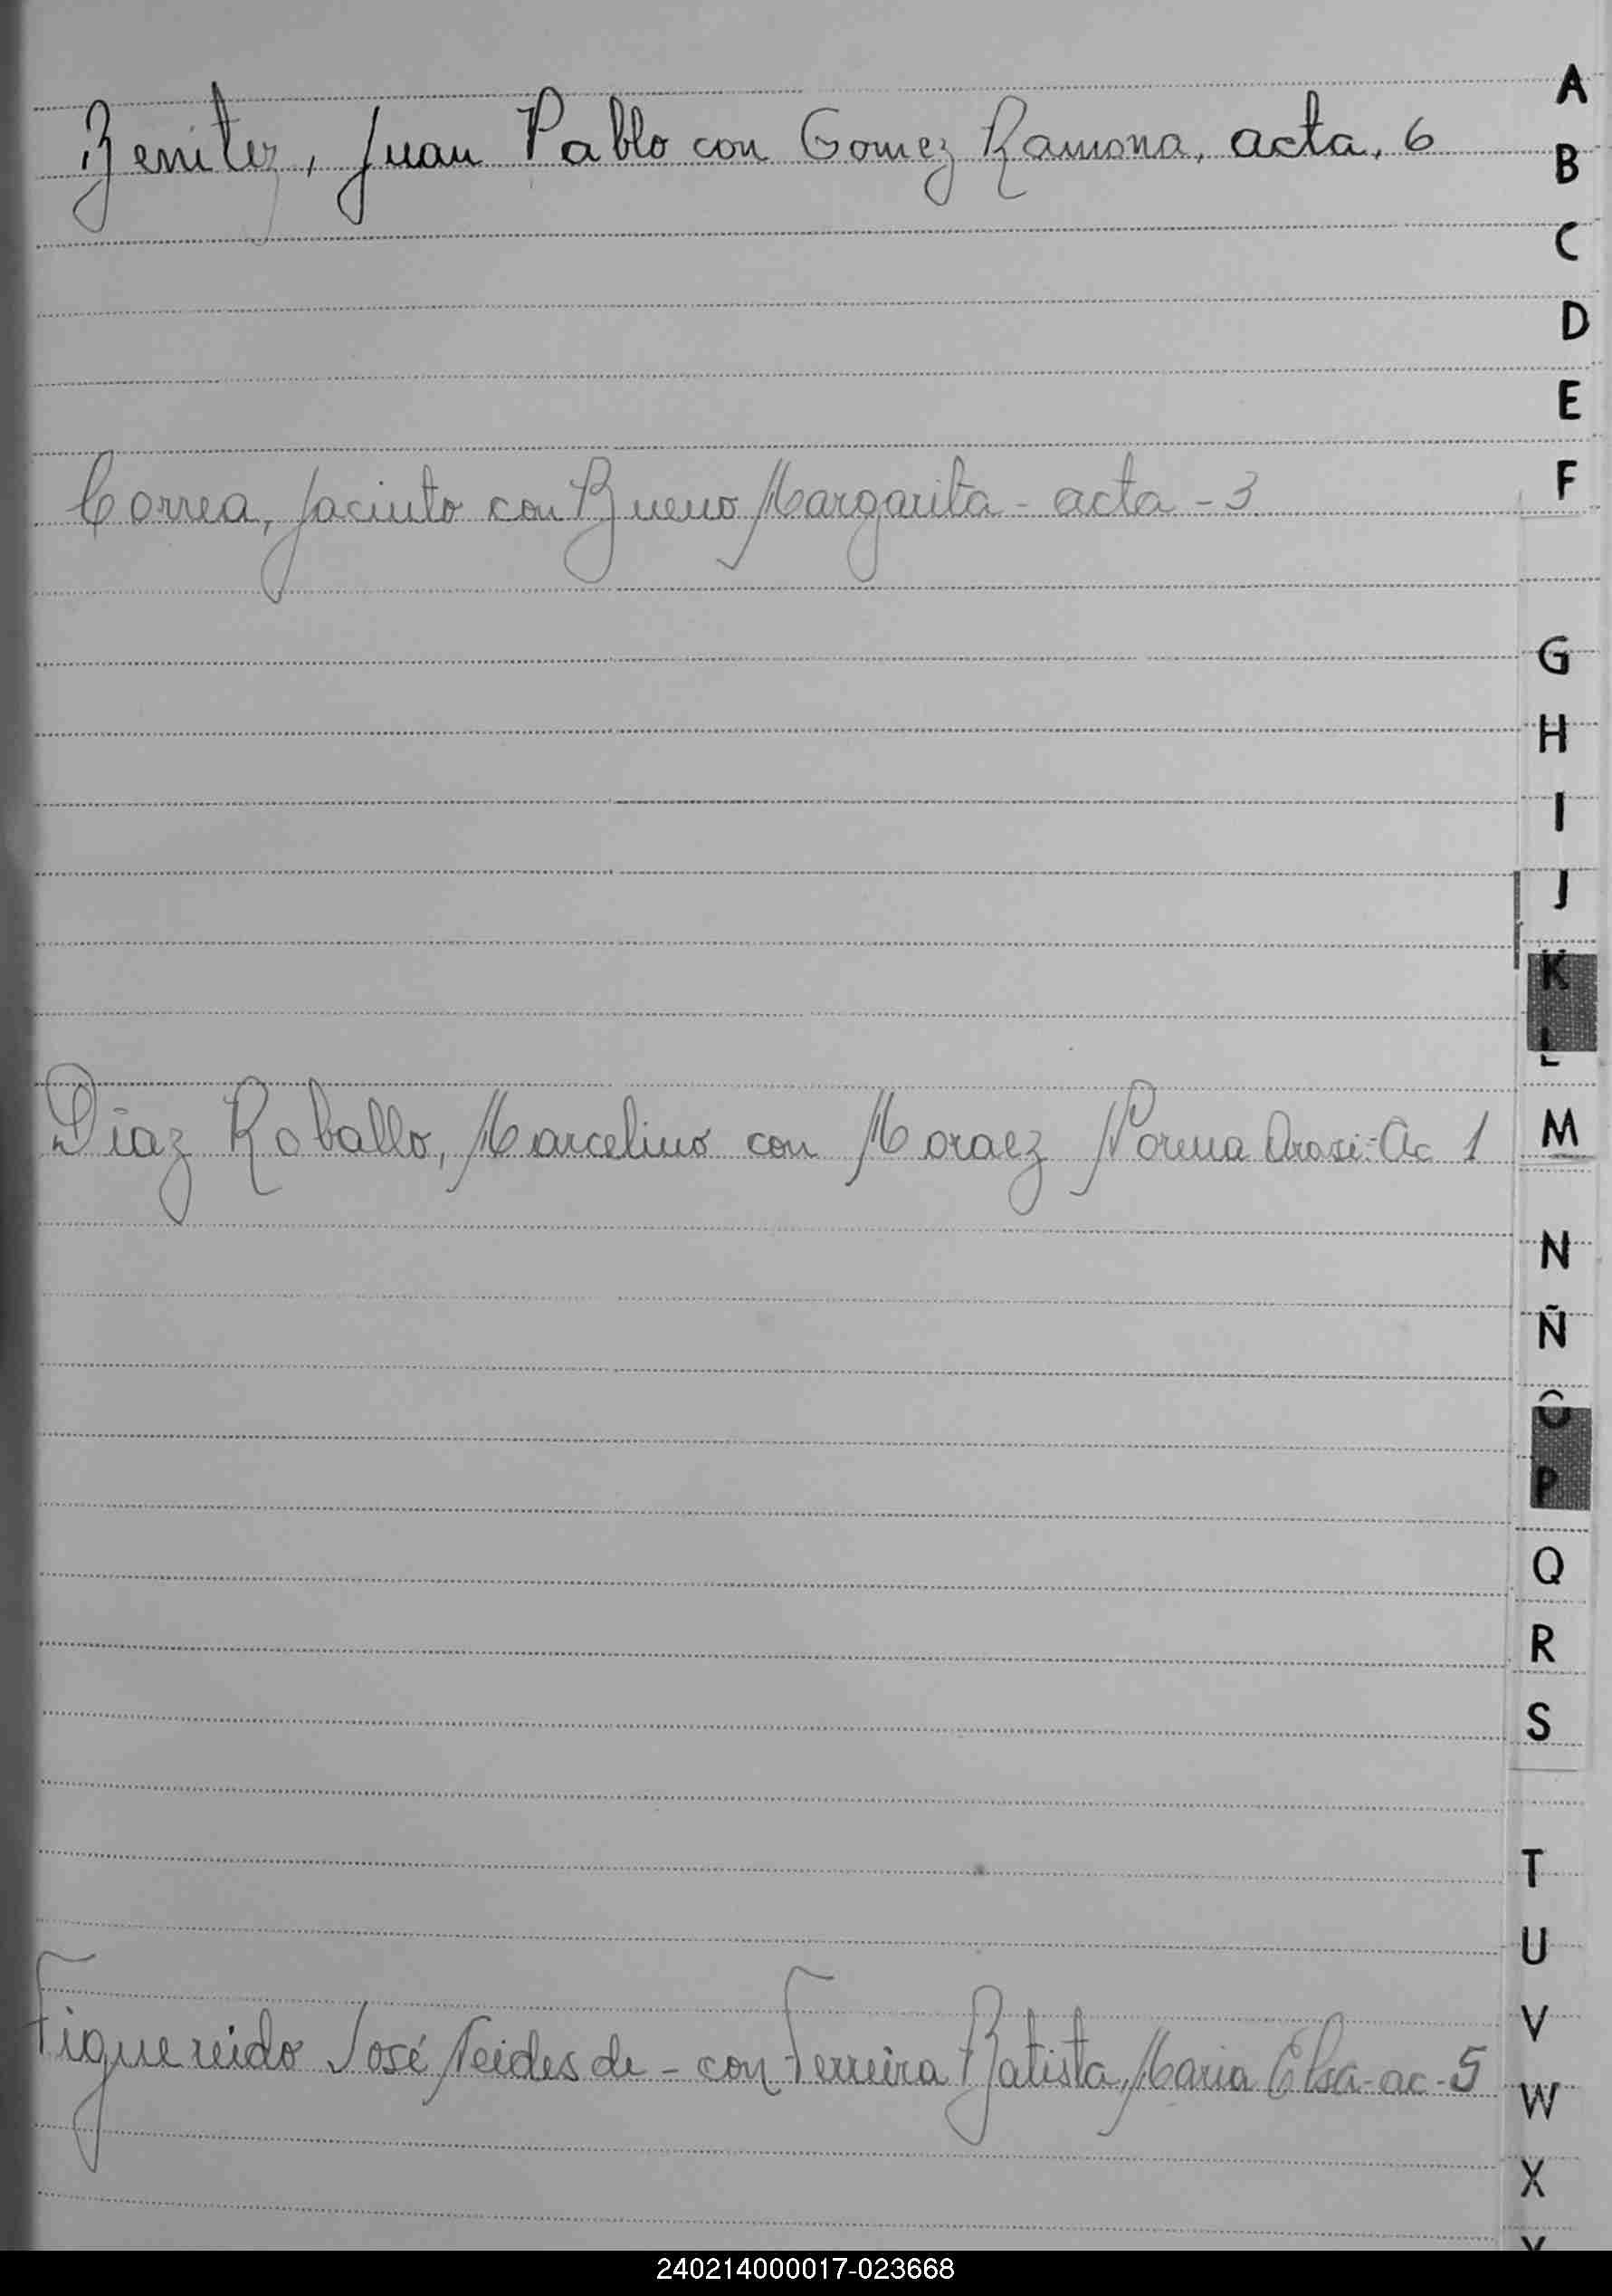 Benitez, Juan Pablo con Gomez Ramona, acta. 6
Correa, Jacinto con Bueno Margarita - acta - 3
Diaz Roballo, Marcelino con Moraez Norma Arasi - Ac 1
Figuereido José Neides de - con Ferreira Batista, Maria Elsa - ac - 5
A
B
C
D
E
F
G
H
I
J
K
L
M
N
Ñ
O
P
Q
R
S
T
U
V
W
X
Y
240214000017-023668